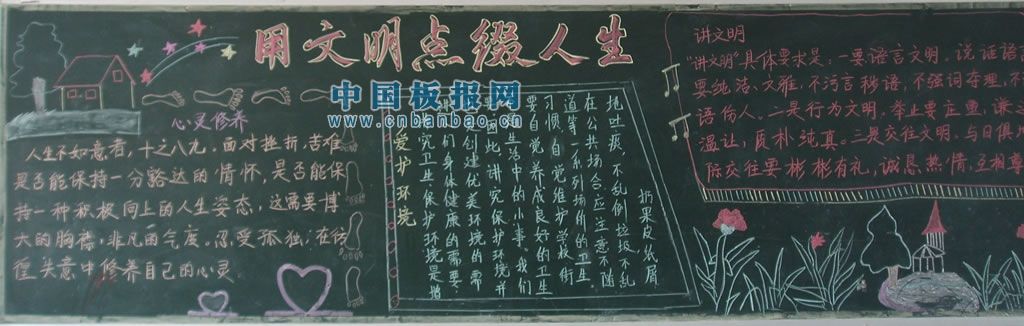 用文明点缀人生
中国板报网
www.cnbanbao.cn
心灵修养
人生不如意者,十之八九。面对挫折,苦难
是否能保持一分豁达的情怀,是否能保
持一种积极向上的人生姿态,这需要博
大的胸襟,非凡的气度。忍受孤独;在彷
徨失意中修养自己的心灵
爱护环境
讲究卫生、保护环境是指
们身体健康的需要,
是创建优美环境的需
要。因此,讲究保护环境并
生活中的小事。我们
要自觉养成良好的卫生
习惯,自觉维护学校街
道等一系列场所的卫生
在公共场合,应注意不随
地吐痰,不乱倒垃圾不乱
扔果皮纸屑
讲文明
"讲文明"具体要求是:一要语言文明。说话语言
要纯洁、文雅,不污言秽语,不强词夺理,不
语伤人。二是行为文明,举止要庄重,谦逊
温让,质朴纯真。三是交往文明。与日俱增
际交往要彬彬有礼,诚恳热情,互相尊